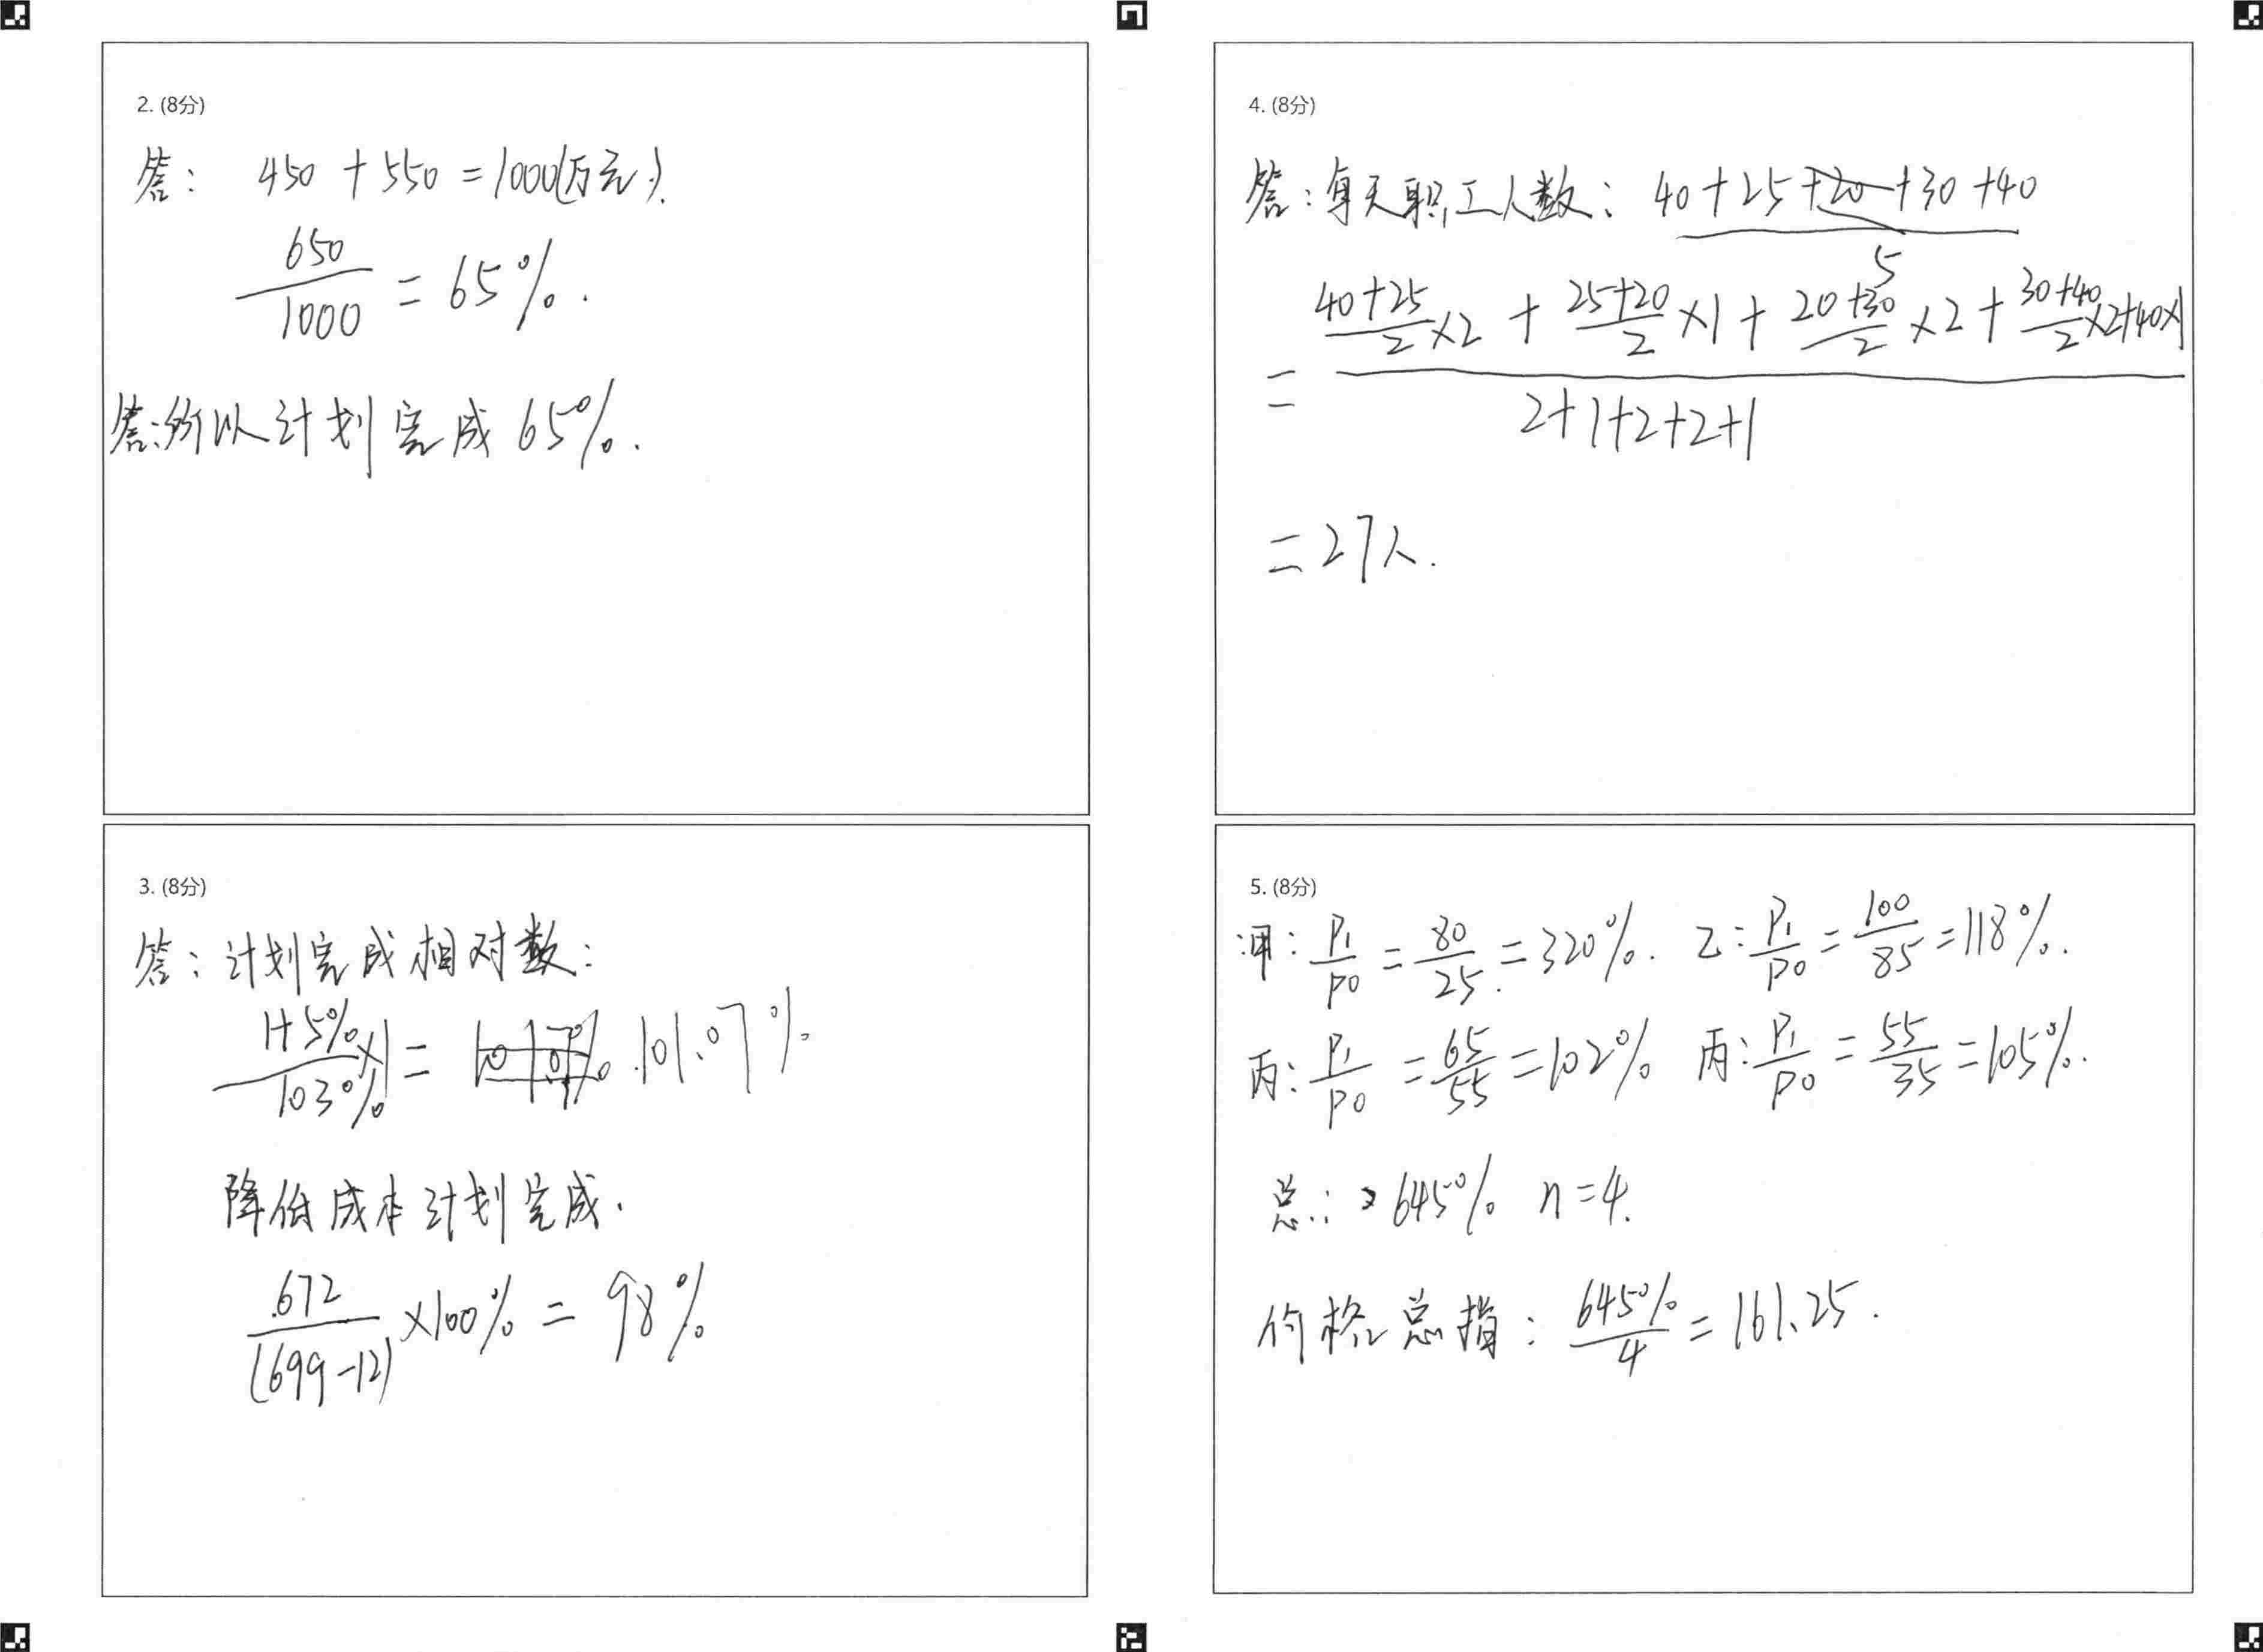 2. (8分)
答: 450 + 550 = 1000(万元).
650/1000 = 65%.
答:所以计划完成 65%.
3. (8分)
答: 计划完成相对数:
1+5%/103% ×1 = 101.07%
降低成本计划完成.
672/(699-12) ×100% = 98%
4. (8分)
答: 每天职工人数: 40+25+20+30+40
5
= 40+25/2 ×2 + 25+20/2 ×1 + 20+30/2 ×2 + 30+40/2 ×2+40×1
2+1+2+2+1
= 27人.
5. (8分)
甲: P1/P0 = 80/25 = 320%. 乙: P1/P0 = 100/85 = 118%.
丙: P1/P0 = 65/55 = 102% 丙: P1/P0 = 55/35 = 105%.
总: 645% n=4.
价格总指: 645%/4 = 161.25.